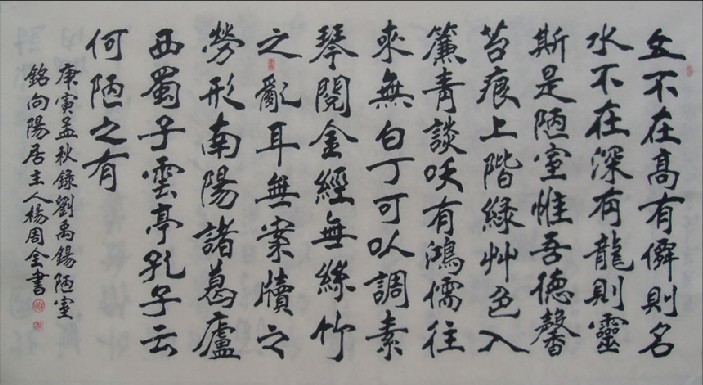 山不在高有僊則名
水不在深有龍則靈
斯是陋室惟吾德馨
苔痕上階緑艸色入
簾青談咲有鴻儒往
來無白丁可以調素
琴閱金經無絲竹
之亂耳無案牘之
勞形南陽諸葛廬
西蜀子雲亭孔子云
何陋之有
庚寅孟秋錄劉禹錫陋室
銘向陽居主人楊周全書